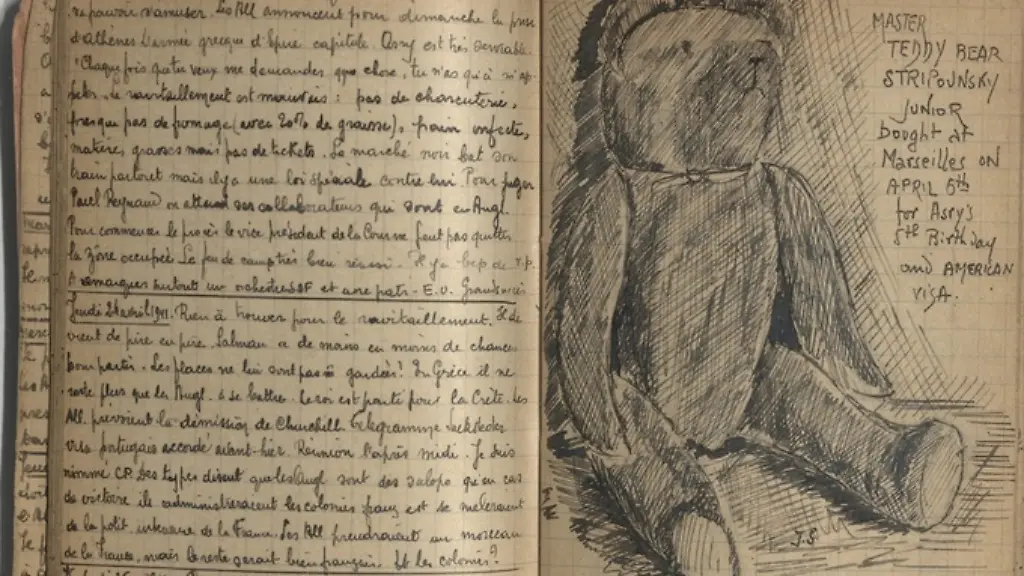 repouvoir s'amuser. Les All annoncent pour dimanche la prise
d'Athènes. L'armée grecque d'Epire capitule. Assy est très serviable
"Chaque fois que tu veux me demander qque chose, tu n'as qu'à m'ap-
peler. Le ravitaillement est mauvais : pas de charcuterie,
presque pas de fromage (avec 20% de graisse), pain infecte,
matières grasses mais pas de tickets. Le marché noir bat son
train partout mais il y a une loi spéciale contre lui. Pour juger
Paul Reynaud on attend ses collaborateurs qui sont en Angl.
Pour commencer le procès le vice président de la Cour ne peut pas quitter
la zône occupée. Le feu de camp très bien réussi. Il y a bcp de
A remarquer surtout un orchestre et une E.U. Grands
Jeudi 24 avril 1941. Rien à trouver pour le ravitaillement. Il de
vient de pire en pire. Salman a de moins en moins de chances
pour partir. Les places ne lui sont pas gardées! En Grèce il ne
reste plus que les Angl. à se battre. Le roi est parti pour la Crète. Les
All. prévoient la démission de Churchill. Télégramme
visa portugais accordé avant-hier. Réunion l'après midi. Je suis
nommé CP. Des types disent que les Angl sont des salops qu'en cas
de victoire ils administreraient les colonies franç et se mêleraient
de la polit. intérieure de la France. Les All prendraient un morceau
de la France, mais le reste serait bien français. Et les colonies?
MASTER
TEDDY BEAR
STRIPOUNSKY
JUNIOR
bought at
Marseilles ON
APRIL 6th
for Assy's
5th Birthday
and AMERICAN
VISA.
J.S